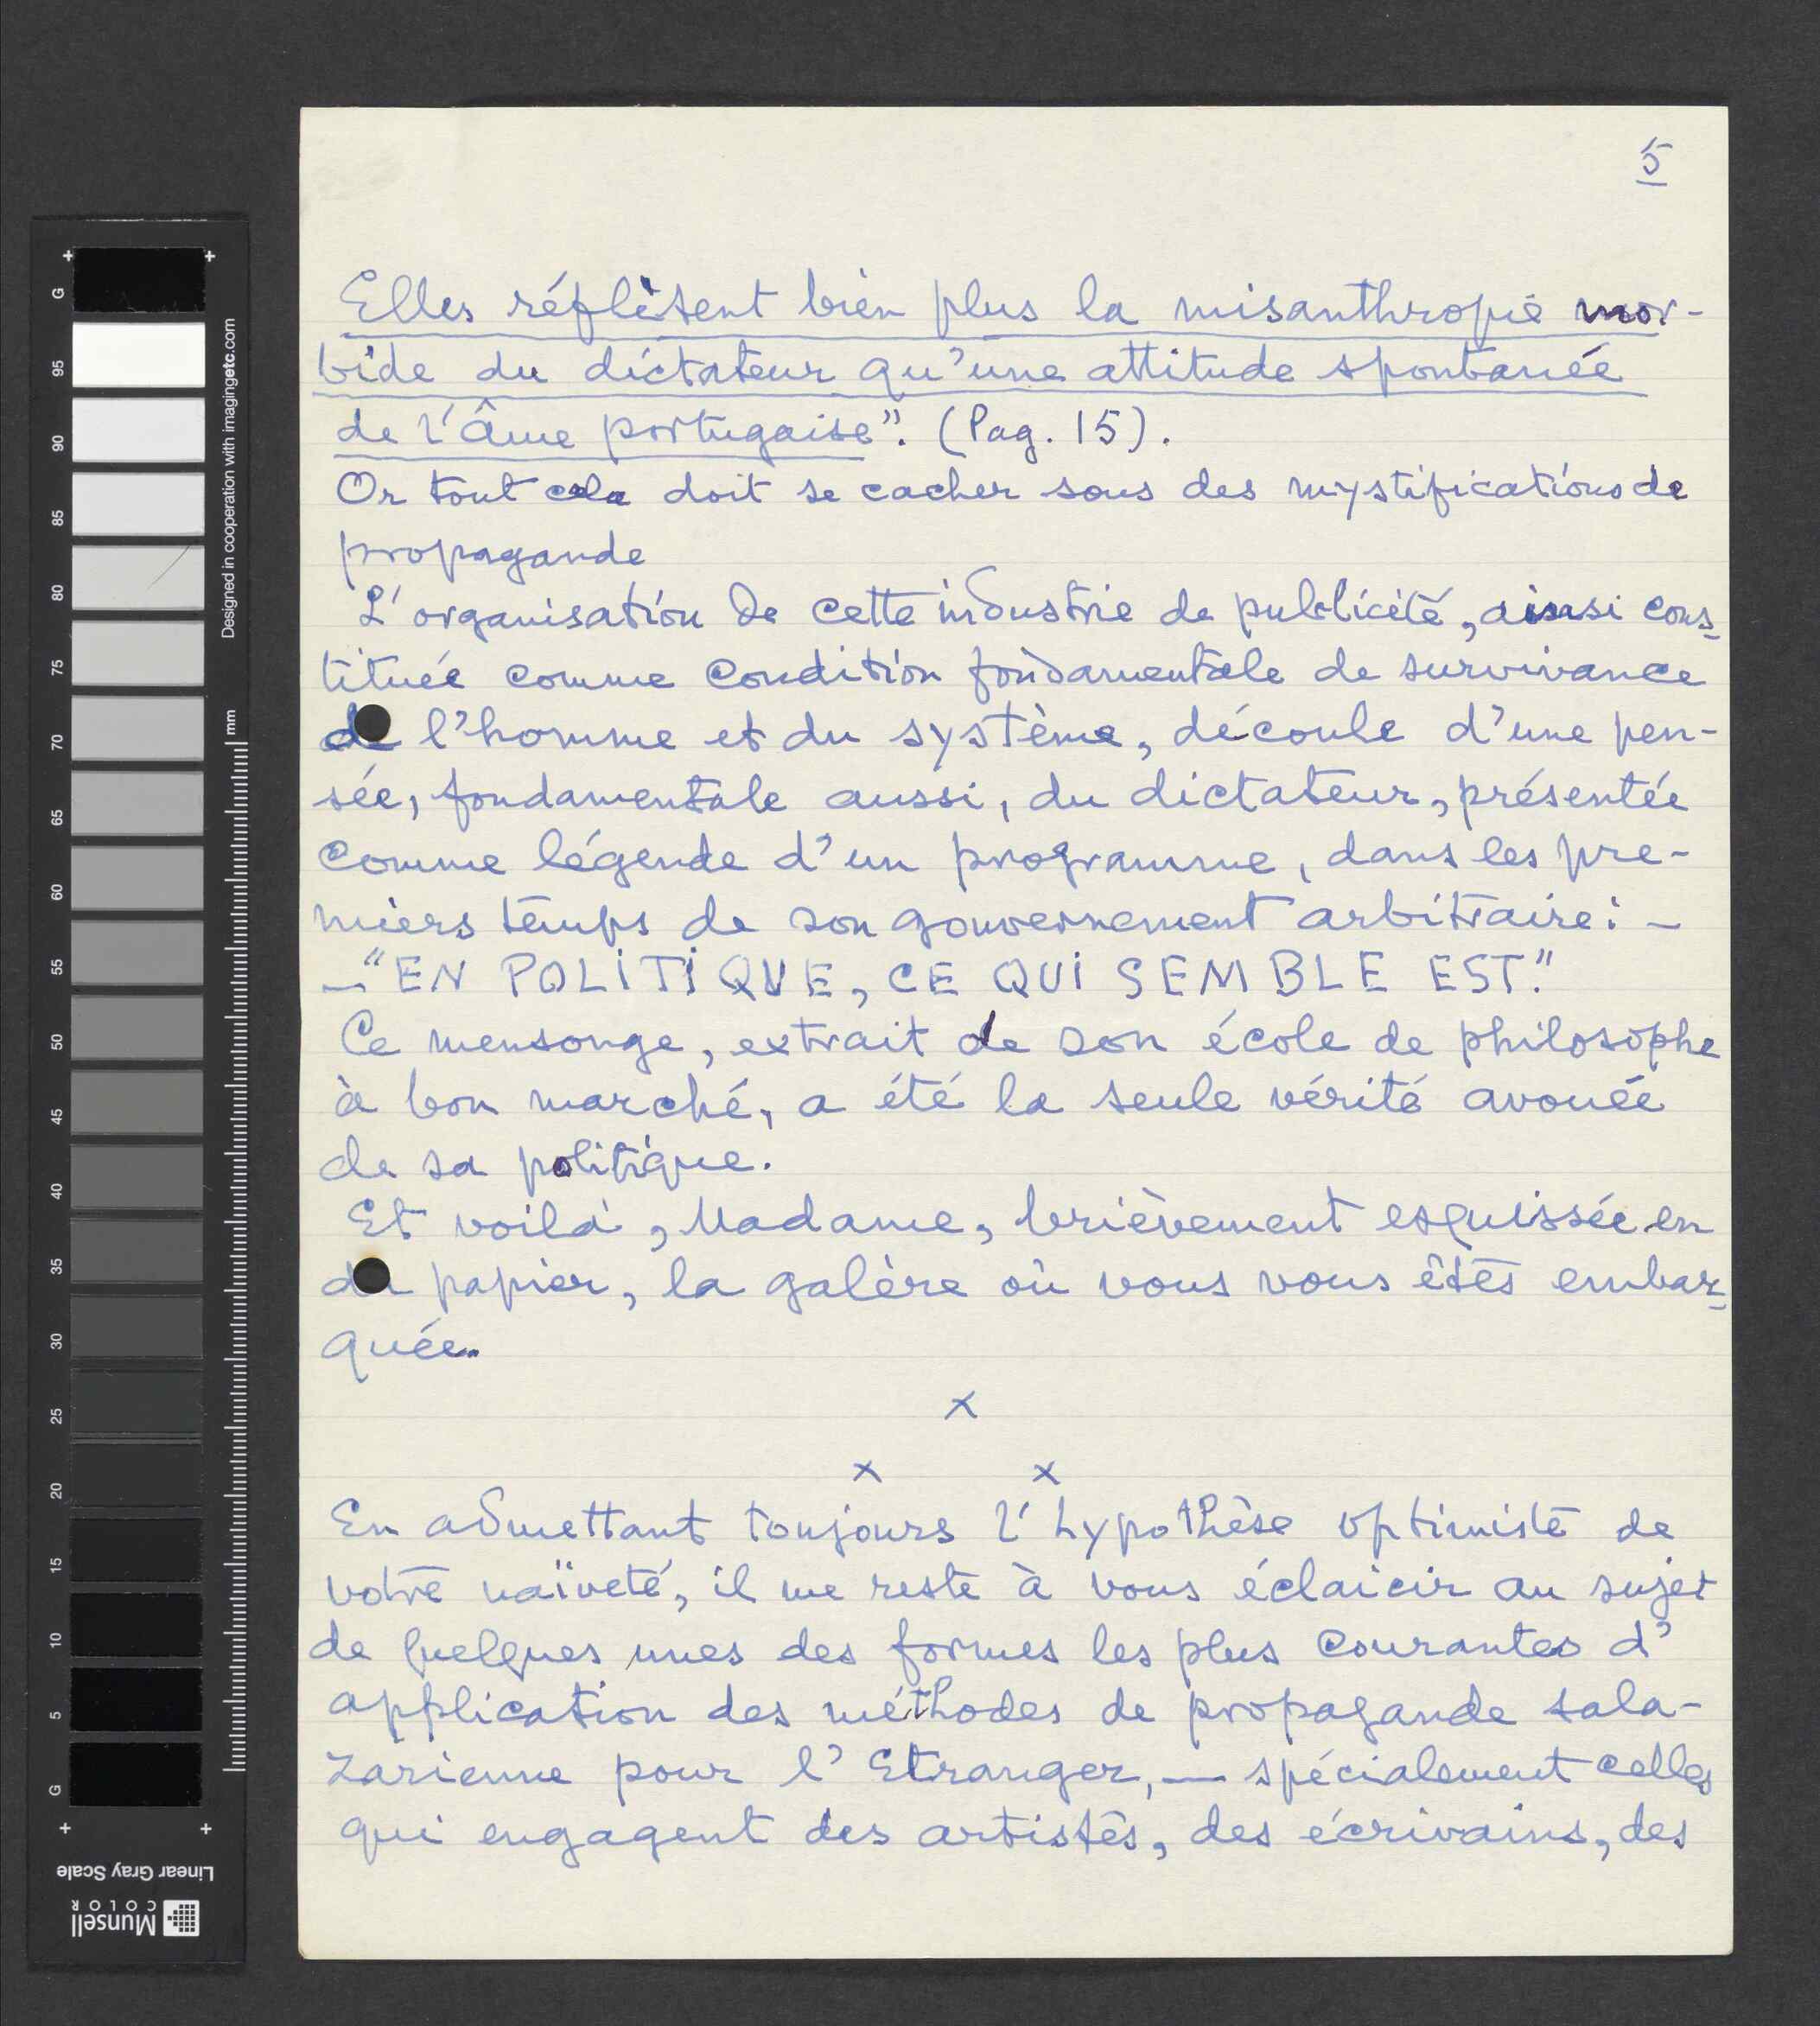 5
Elles réflètent bien plus la misanthropie mor-
bide du dictateur qu'une attitude spontanée
de l'âme portugaise". (Pag. 15).
Or tout cela doit se cacher sous des mystifications de
propagande
L'organisation de cette industrie de publicité, ainsi cons-
tituée comme condition fondamentale de survivance
de l'homme et du système, découle d'une pen-
sée, fondamentale aussi, du dictateur, présentée
comme légende d'un programme, dans les pre-
miers temps de son gouvernement arbitraire: -
- "EN POLITIQUE, CE QUI SEMBLE EST."
Ce mensonge, extrait de son école de philosophe
à bon marché, a été la seule vérité avouée
de sa politique.
Et voilà, Madame, brièvement esquissée en
du papier, la galère où vous vous êtes embar-
quée.
x
x x
En admettant toujours l'hypothèse optimiste de
votre naïveté, il me reste à vous éclaicir au sujet
de quelques unes des formes les plus courantes d'
application des méthodes de propagande sala-
zarienne pour l'Etranger, — spécialement celles
qui engagent des artistes, des écrivains, des
G
95
90
85
80
75
70
65
60
55
50
45
40
35
30
25
20
15
10
5
G
mm
Designed in cooperation with imagingetc.com
Linear Gray Scale
Munsell
COLOR